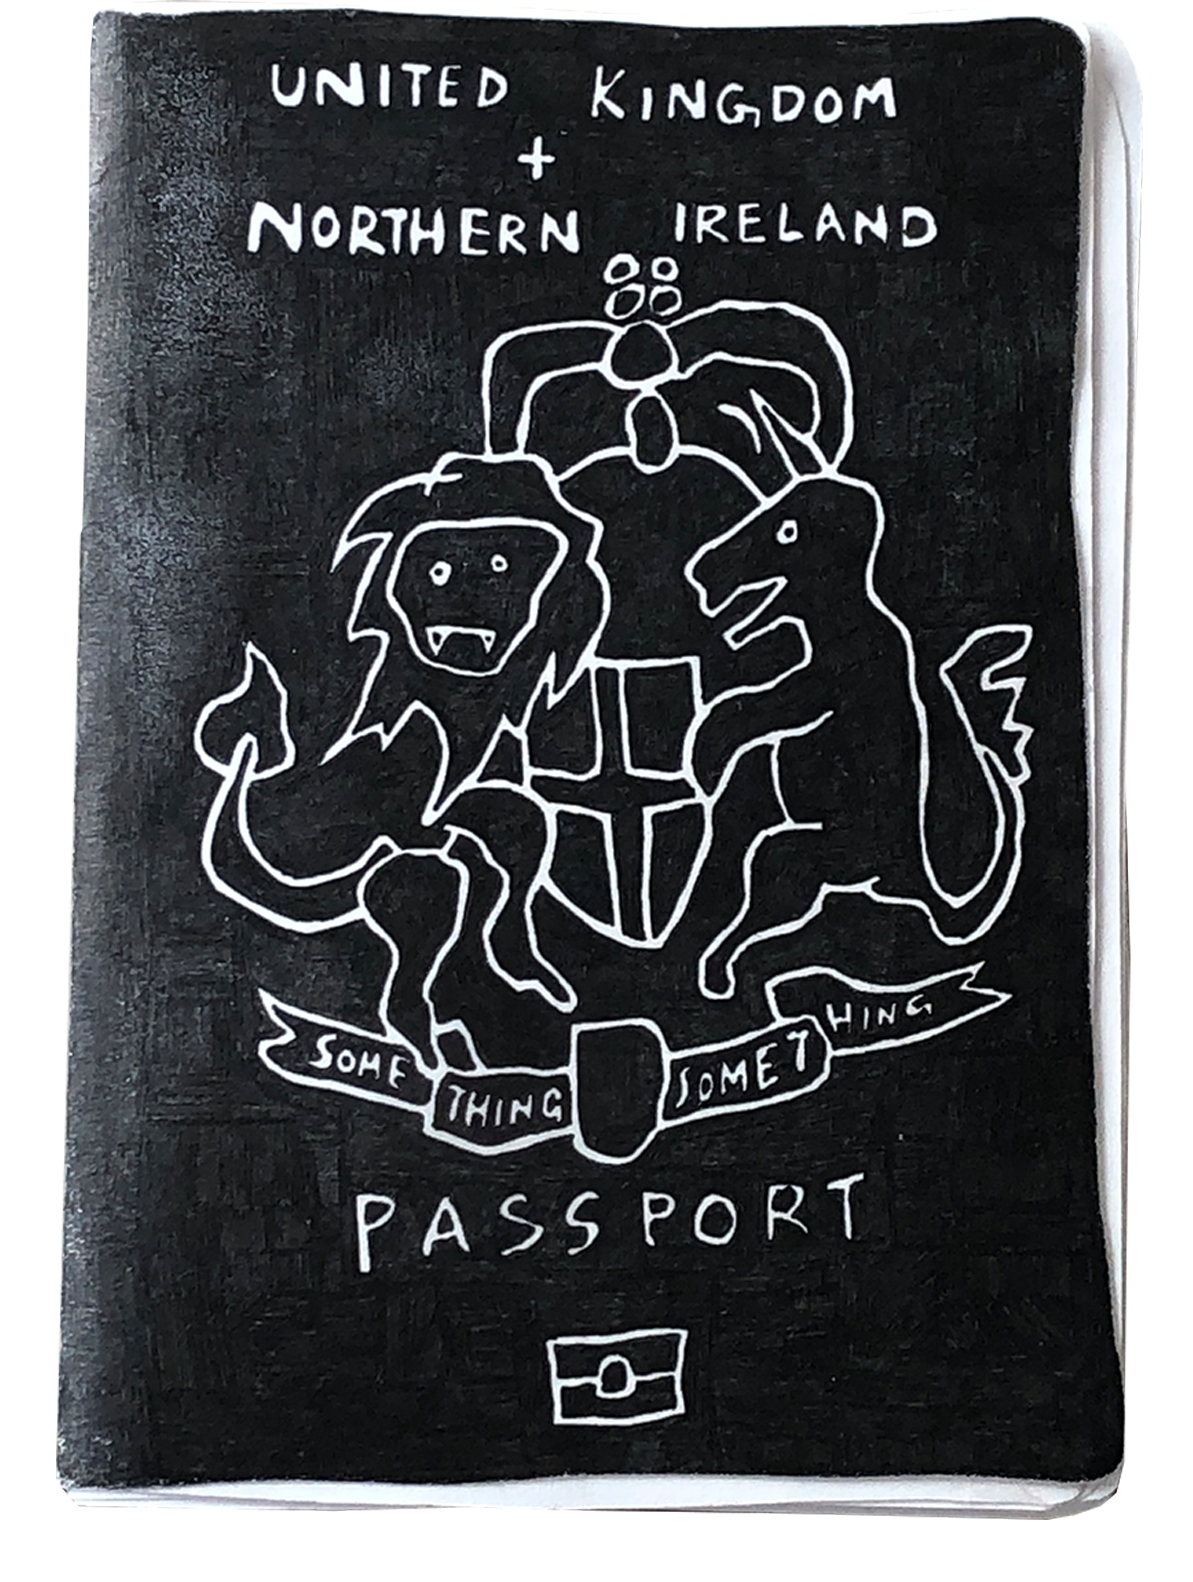 UNITED KINGDOM
+
NORTHERN IRELAND
SOME THING SOMET HING
PASSPORT